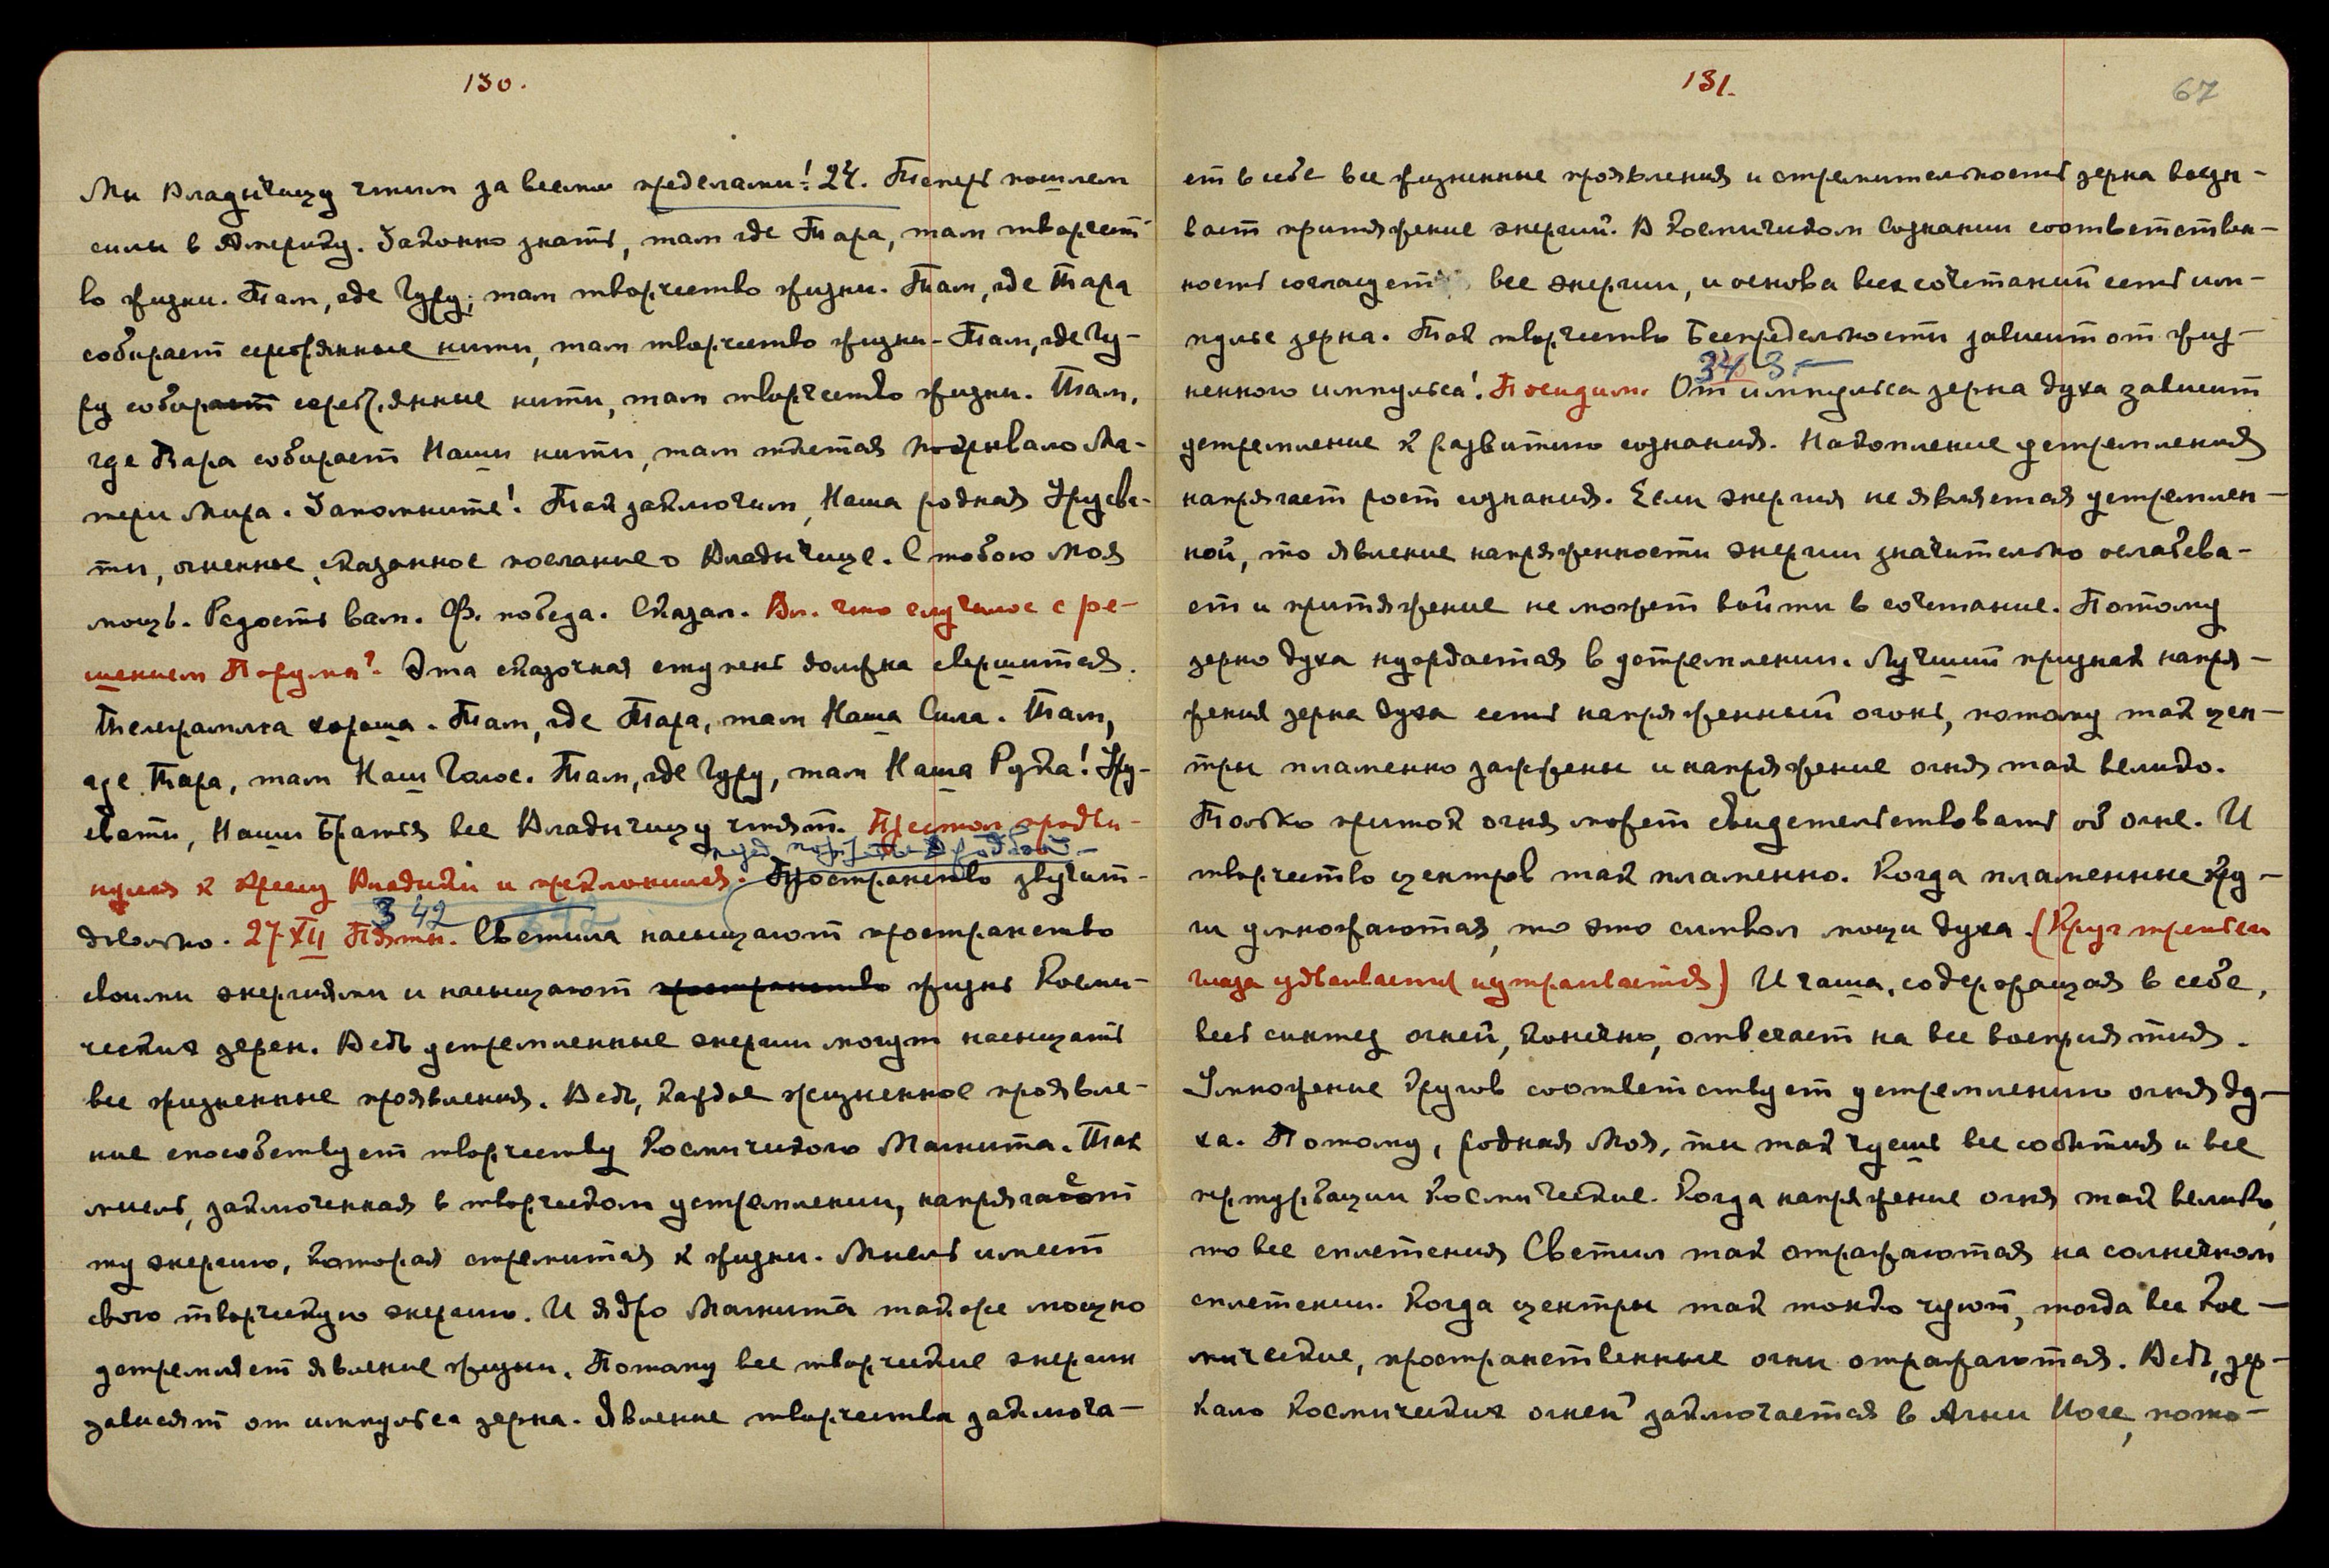 130.
Мы Владычицу чтим за всеми пределами! 24. Теперь пошлем
силы в Америку. Законно знать, там где Тара, там творчест-
во жизни. Там, где Гуру, там творчество жизни. Там, где Тара
собирает серебрянные нити, там творчество жизни. Там, где Гу-
ру собирает серебрянные нити, там творчество жизни. Там,
где Тара собирает Наши нити, там ткется покрывало Ма-
тери Мира. Запомните! Так заключим, Наша родная Урусва-
ти, огненное, сказанное послание о Владычице. С тобою Моя
мощь. Радость вам. Ф. победа. Сказал. Вл. что случилось с ре-
шением Порума? Эта сказочная ступень должна свершится.
Телеграмма хороша. Там, где Тара, там Наша Сила. Там,
где Тара, там Наш Голос. Там, где Гуру, там Наша Рука! Уру-
свати, Наши Братья все Владычицу чтят. Престол придви-
нулся к креслу Владыки и преклонился. Пространство звучит
довольно. 27 XII Пятн. 342 Светила насыщают пространство
своими энергиями и насыщают пространство жизнь Косми-
ческих зерен. Ведь устремленные энергии могут насыщать
все жизненные проявления. Ведь, каждое жизненное проявле-
ние способствует творчеству Космического Магнита. Так
мысль, заключенная в творческом устремлении, напрягает
ту энергию, которая стремится к жизни. Мысль имеет
свою творческую энергию. И ядро Магнита также мощно
устремляет явление жизни. Потому все творческие энергии
зависят от импульса зерна. Явление творчества заключа-
131.
67
ет в себе все жизненные проявления и стремительность зерна вызы-
вает притяжение энергий. В Космическом Сознании соответствен-
ность соглащет все энергии, и основа всех сочетаний есть им-
пульс зерна. Так творчество Беспредельности зависит от жиз-
ненного импульса! Посидим. 343 От импульса зерна духа зависит
устремление к развитию сознания. Накопление устремления
напрягает рост сознания. Если энергия не является устремлен-
ной, то явление напряженности энергии значительно ослабева-
ет и притяжение не может войти в сочетание. Потому
зерно духа нуждается в устремлении. Лучший признак напря-
жения зерна духа есть напряженный огонь, потому так цен-
тры пламенно зажжены и напряжение огня так велико.
Только приток огня может свидетельствовать об огне. И
творчество центров так пламенно. Когда пламенные кру-
ги умножаются, то это символ мощи духа. (Круг третьего
глаза удваивается и утраивается) И чаша, содержащая в себе,
весь синтез огней, конечно, отвечает на все восприятия.
Умножение кругов соответствует устремлению огня ду-
ха. Потому, родная Моя, ты так чуешь все события и все
пертурбации космические. Когда напряжение огня так велико,
то все сплетения Светил так отражаются на солнечном
сплетении. Когда центры так тонко чуют, тогда все кос-
мические, пространственные огни отражаются. Ведь, зер-
кало космических огней заключается в Агни Йоге, пото-